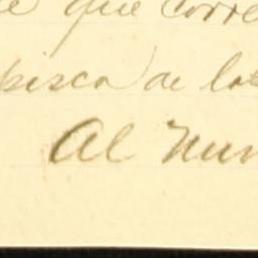 que corre
pisca de la
Al num